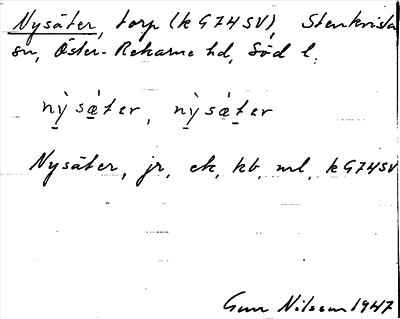 Nysäter, torp (k G7H SV), Stenkvista
sn, Öster-Rekarne hd, Söd l.
nỳsæ̀ter, nỳsæ̀ter
Nysäter, jr, ek, kb, ml, k G7H SV
Gun Nilsson 1947